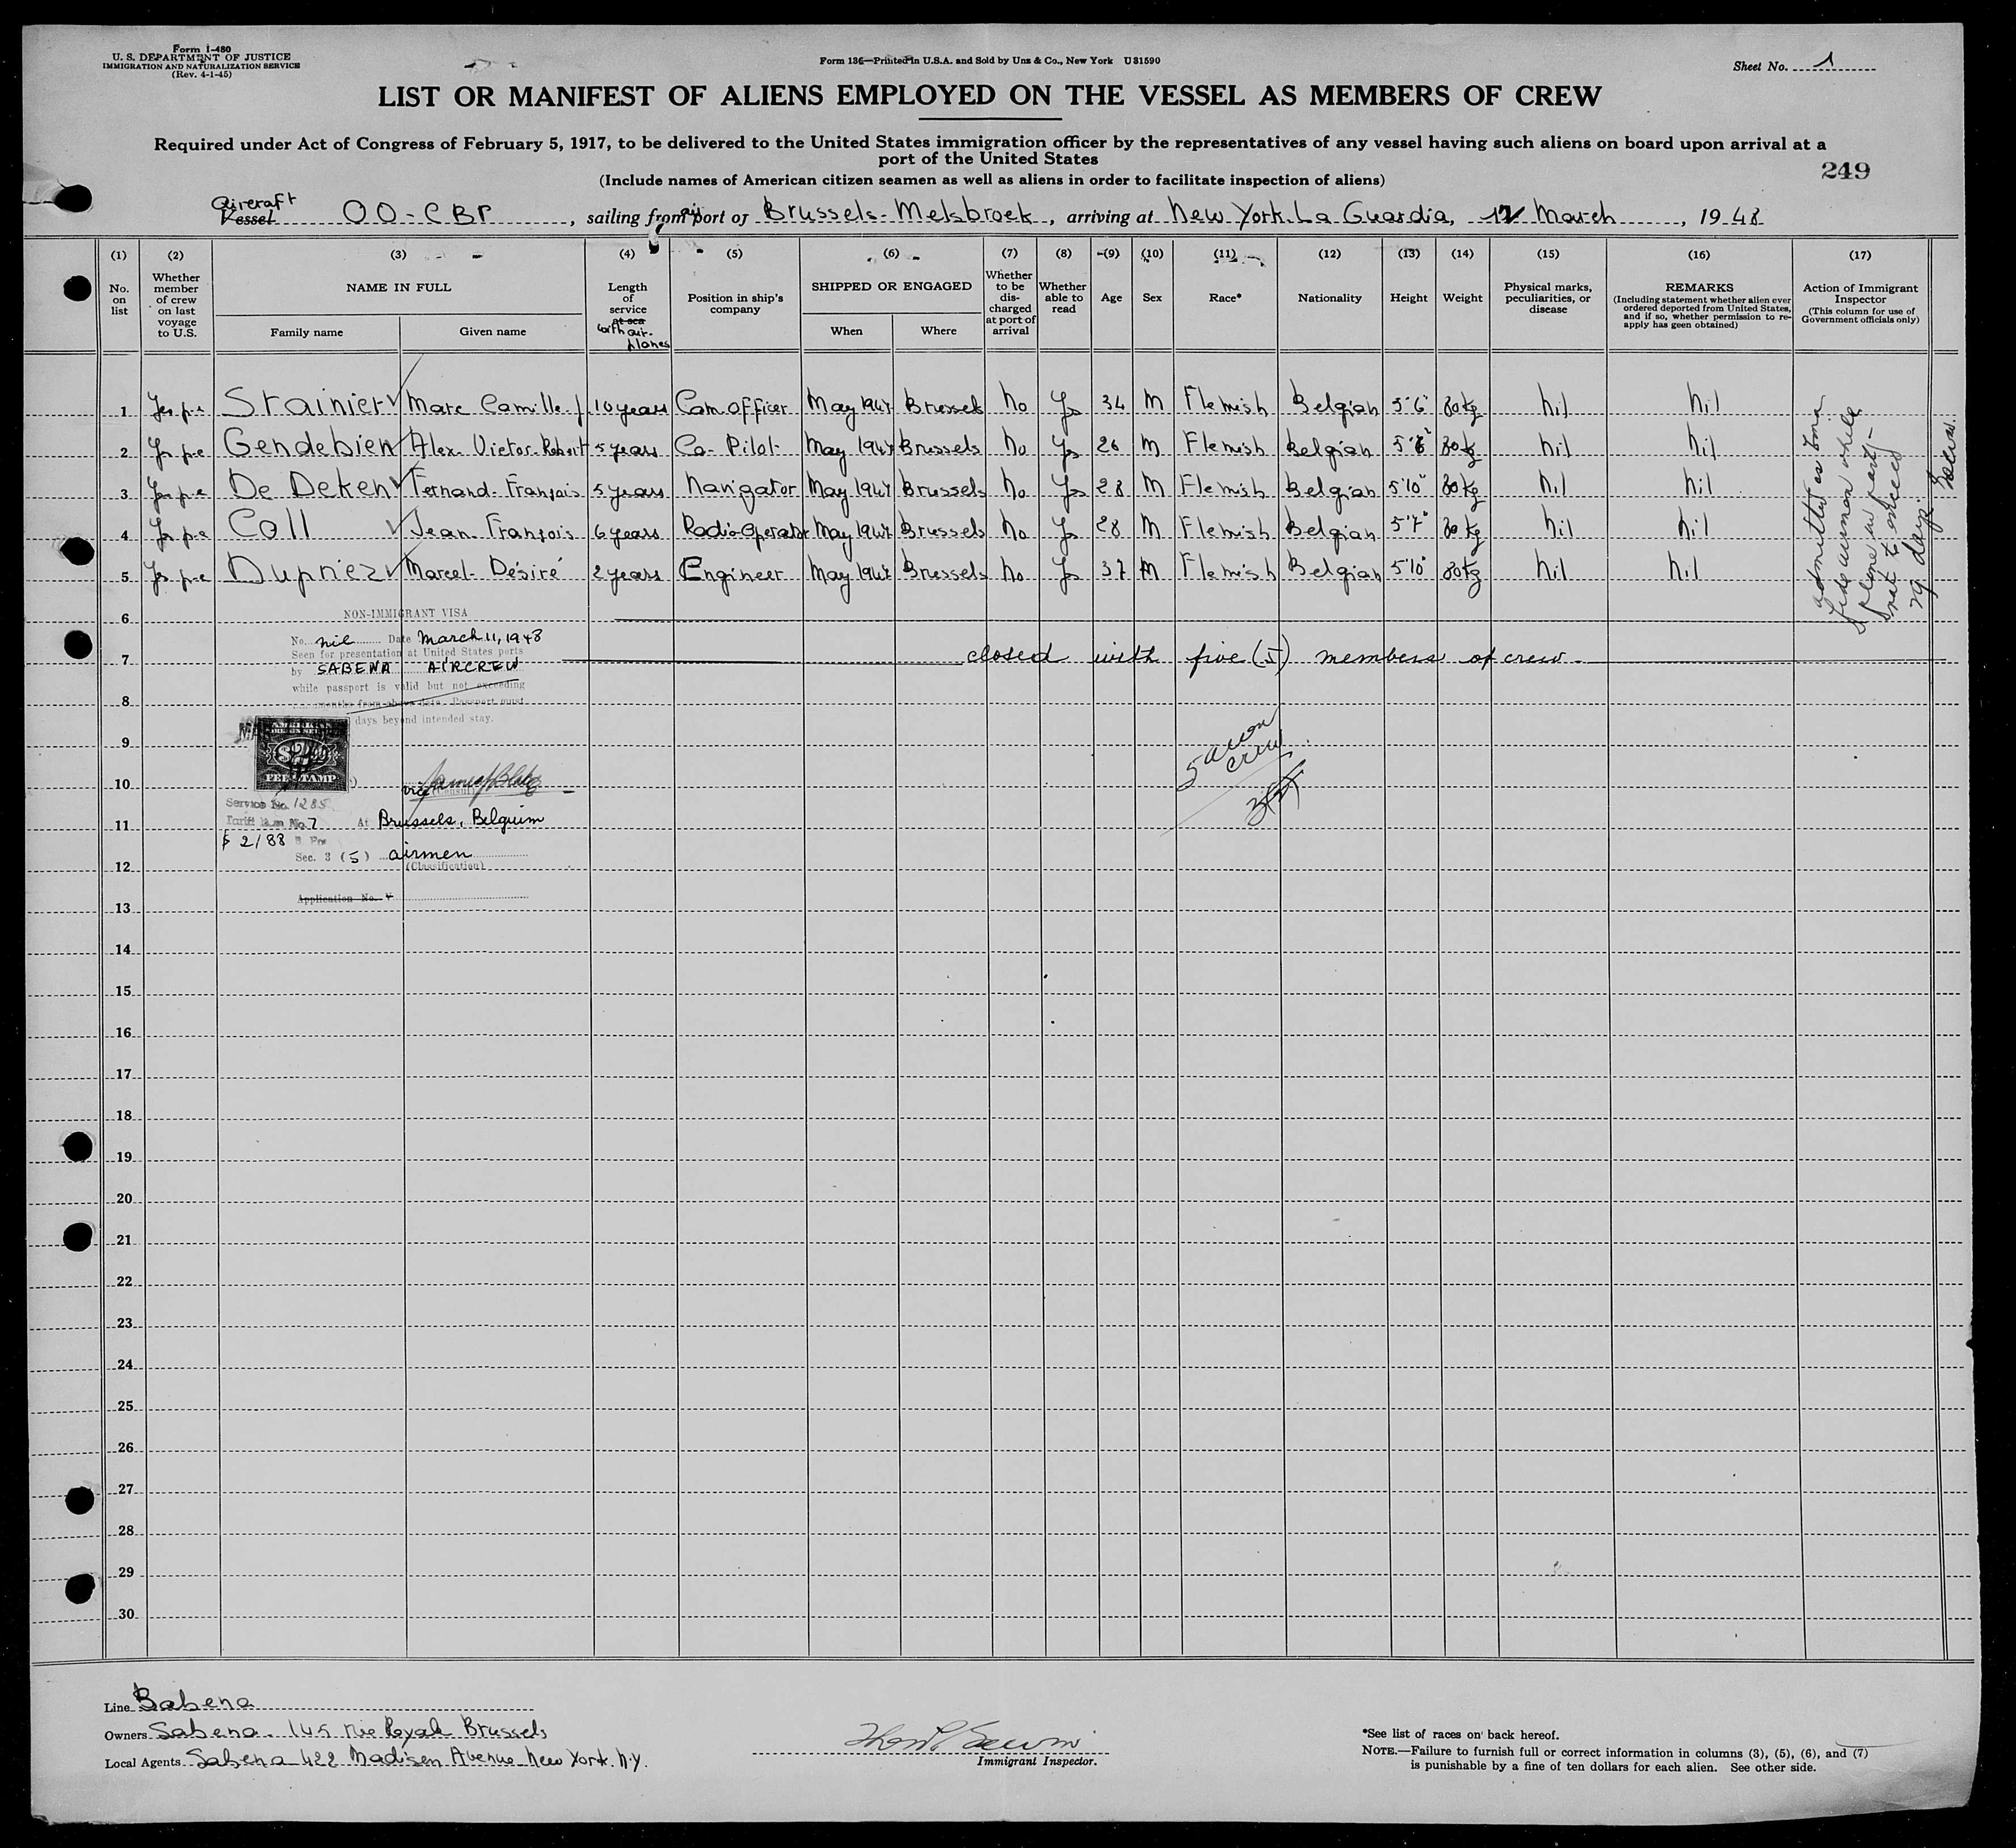 Form I-480
U. S. DEPARTMENT OF JUSTICE
IMMIGRATION AND NATURALIZATION SERVICE
(Rev. 4-1-45)
Form 136—Printed in U.S.A. and Sold by Unz & Co., New York U 31590
Sheet No. 1
LIST OR MANIFEST OF ALIENS EMPLOYED ON THE VESSEL AS MEMBERS OF CREW
Required under Act of Congress of February 5, 1917, to be delivered to the United States immigration officer by the representatives of any vessel having such aliens on board upon arrival at a
port of the United States
249
(Include names of American citizen seamen as well as aliens in order to facilitate inspection of aliens)
Aircraft
Vessel OO-CBP, sailing from air port of Brussels-Melsbroek, arriving at New York. La Guardia, 12 March, 1948
(1) (2) (3) (4) (5) (6) (7) (8) (9) (10) (11) (12) (13) (14) (15) (16) (17)
No. on list
Whether member of crew on last voyage to U.S.
NAME IN FULL
Family name
Given name
Length of service at sea with air-planes
Position in ship's company
SHIPPED OR ENGAGED
When
Where
Whether to be discharged at port of arrival
Whether able to read
Age
Sex
Race*
Nationality
Height
Weight
Physical marks, peculiarities, or disease
REMARKS
(Including statement whether alien ever ordered deported from United States, and if so, whether permission to re-apply has geen obtained)
Action of Immigrant Inspector
(This column for use of Government officials only)
1 Yes Stainier Marc Camille J. 10 years Com. officer May 1947 Brussels No Yes 34 M Flemish Belgian 5'6" 80 kg nil nil
2 Yes Gendebien Alex. Victor. Robert 5 years Co-Pilot May 1947 Brussels No Yes 26 M Flemish Belgian 80 kg nil nil
3 Yes De Deken Fernand. François 5 years Navigator May 1947 Brussels No Yes 28 M Flemish Belgian 5'10" 80 kg nil nil
4 Yes Coll Jean. François 6 years Radio-Operator May 1947 Brussels No Yes 28 M Flemish Belgian 5'7" 80 kg nil nil
5 Yes Dupriez Marcel-Désiré 2 years Engineer May 1947 Brussels No Yes 37 M Flemish Belgian 5'10" 80 kg nil nil
admitted as bona
fide airmen while
plane in port —
not to exceed
29 days.
6
NON-IMMIGRANT VISA
No. nil Date March 11, 1948
Seen for presentation at United States ports
7
by SABENA AIRCREW
closed with five (5) members of crew
while passport is valid but not exceeding
8
months from above date. Passport must
days beyond intended stay.
9
AMERICAN
FOREIGN SERVICE
$2
FEE STAMP
5 airmen
crew
10
vice (Consul)
Service No. 1285
11
Tariff Item No. 7 At Brussels, Belgium
$ 2/88
Sec. 3 (5) airmen
12
(Classification)
Application No. V
13
14
15
16
17
18
19
20
21
22
23
24
25
26
27
28
29
30
Line Sabena
Owners Sabena. 145 rue Royale Brussels
Local Agents Sabena 422 Madison Avenue New York. N.Y.
Immigrant Inspector.
*See list of races on back hereof.
NOTE.—Failure to furnish full or correct information in columns (3), (5), (6), and (7)
is punishable by a fine of ten dollars for each alien. See other side.